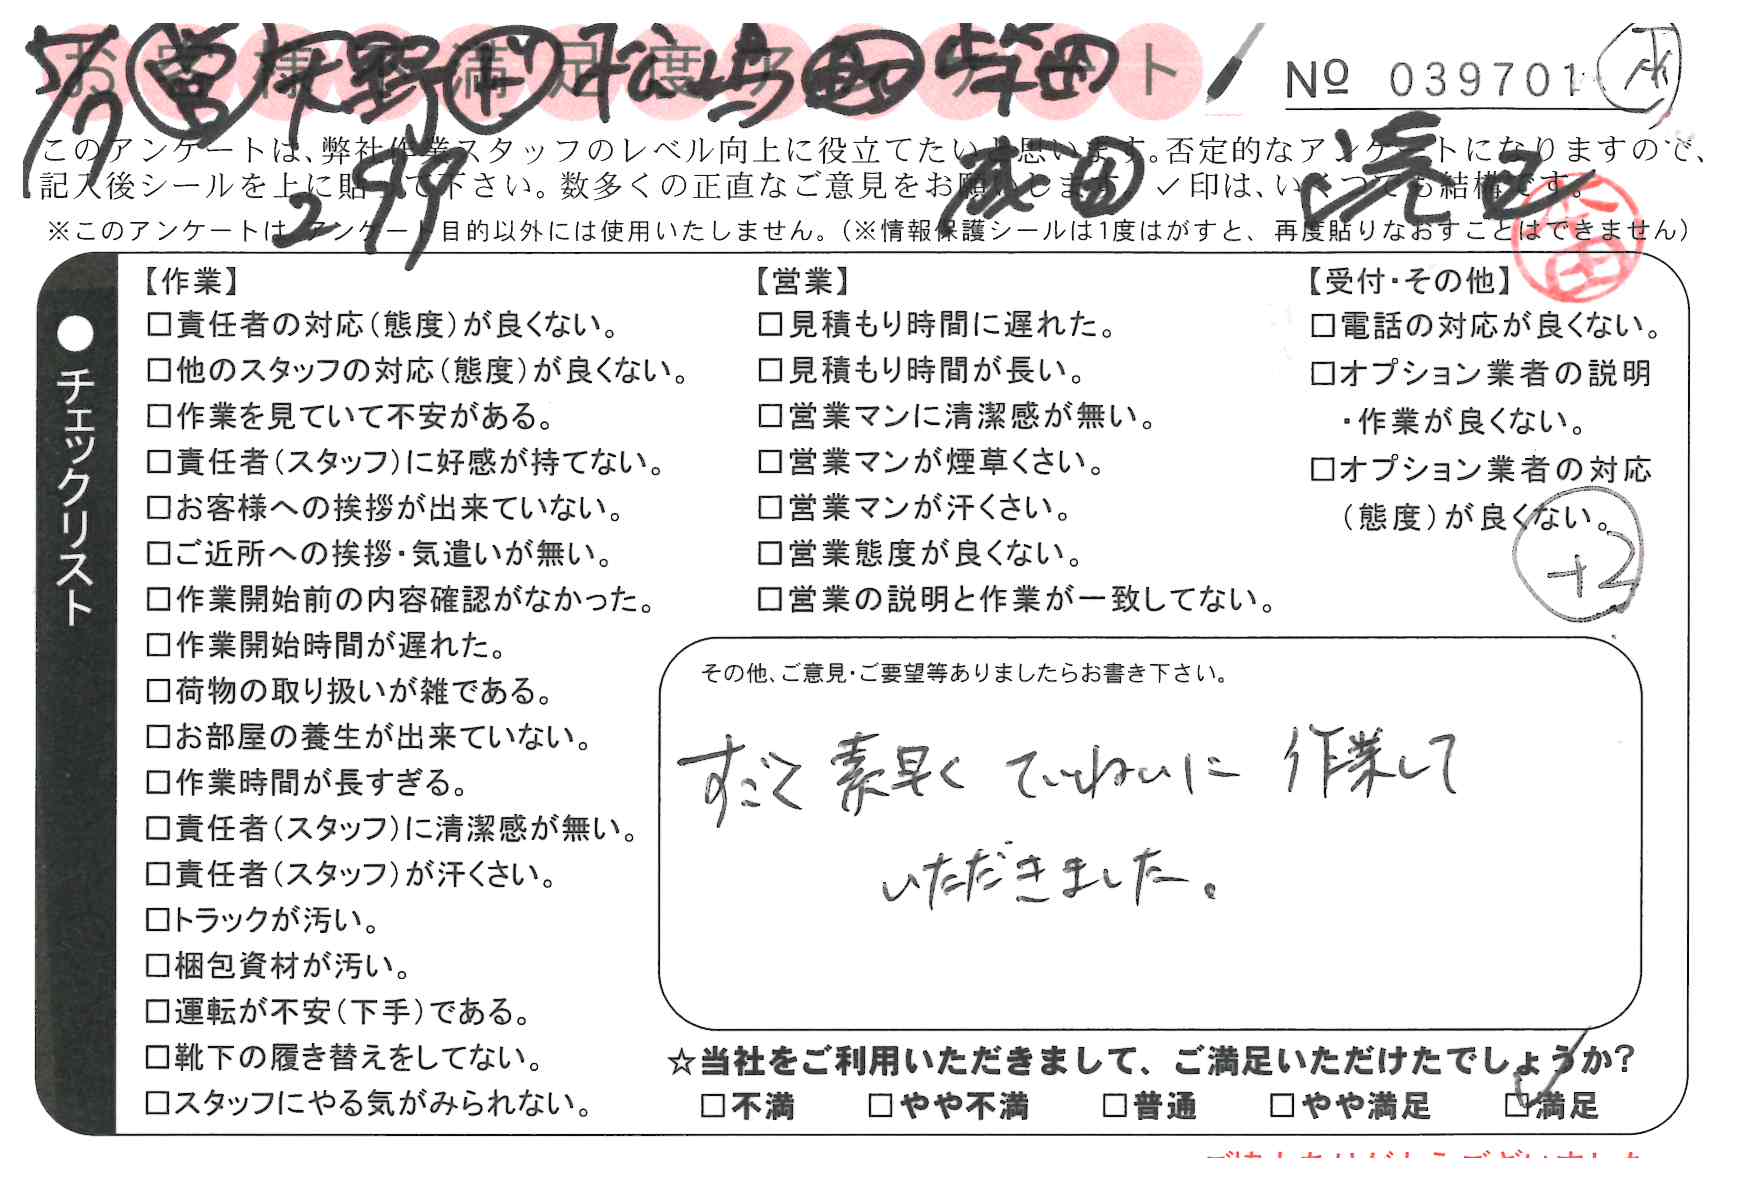 お客様不満足度アンケート
5/7 営 矢野 作 松嶋 助 岸田
No 039701
このアンケートは、弊社作業スタッフのレベル向上に役立てたいと思います。否定的なアンケートになりますので、
299 成田
記入後シールを上に貼って下さい。数多くの正直なご意見をお願いします。✓印は、いくつでも結構です。
※このアンケートは、アンケート目的以外には使用いたしません。（※情報保護シールは1度はがすと、再度貼りなおすことはできません）
●チェックリスト
【作業】
□責任者の対応（態度）が良くない。
□他のスタッフの対応（態度）が良くない。
□作業を見ていて不安がある。
□責任者（スタッフ）に好感が持てない。
□お客様への挨拶が出来ていない。
□ご近所への挨拶・気遣いが無い。
□作業開始前の内容確認がなかった。
□作業開始時間が遅れた。
□荷物の取り扱いが雑である。
□お部屋の養生が出来ていない。
□作業時間が長すぎる。
□責任者（スタッフ）に清潔感が無い。
□責任者（スタッフ）が汗くさい。
□トラックが汚い。
□梱包資材が汚い。
□運転が不安（下手）である。
□靴下の履き替えをしてない。
□スタッフにやる気がみられない。
【営業】
□見積もり時間に遅れた。
□見積もり時間が長い。
□営業マンに清潔感が無い。
□営業マンが煙草くさい。
□営業マンが汗くさい。
□営業態度が良くない。
□営業の説明と作業が一致してない。
【受付・その他】
□電話の対応が良くない。
□オプション業者の説明
・作業が良くない。
□オプション業者の対応
（態度）が良くない。
+2
その他、ご意見・ご要望等ありましたらお書き下さい。
すごく素早く ていねいに 作業して
いただきました。
☆当社をご利用いただきまして、ご満足いただけたでしょうか？
□不満 □やや不満 □普通 □やや満足 ☑満足